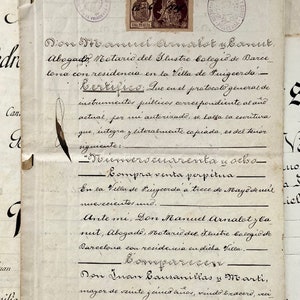 Don Manuel Arnalot y Canut
Abogado, Notario del Ilustre Colegio de Barce-
lona con residencia en la Villa de Puigcerdá
Certifico: Que en el protocolo general de
instrumentos públicos correspondiente al año
actual, por mi autorizado, se halla la escritura
que, íntegra y literalmente copiada, es del tenor
siguiente:
Número cuarenta y ocho
Compra venta perpétua
En la Villa de Puigcerdá a trece de Mayo de mil
nuevecientos uno.
Ante mi, Don Manuel Arnalot y Ca
nut, Abogado, Notario del Ilustre Colegio de
Barcelona con residencia en dicha Villa.
Comparecen
Don Juan y Martí,
mayor de veinte y cinco años,